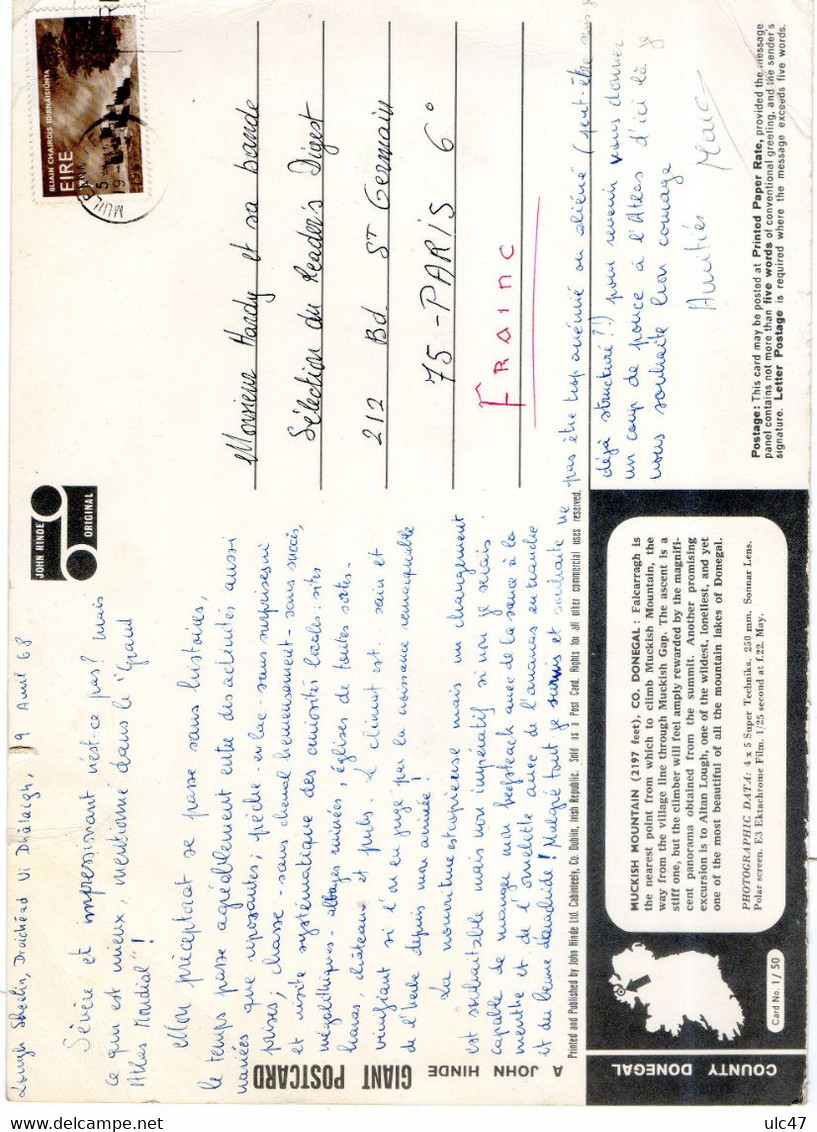 Lough Sheelin, Droichead Ui Dhálaigh, 19 Avril 68
Sévère et impressionnant n'est-ce pas? Mais
ce qui est mieux, mentionné dans le "Grand
Atlas Mondial"!
Mon préceptorat se passe sans histoires,
le temps passe agréablement entre des activités aussi
variées que reposantes; pêche - en lac - sans surprises ni
prises; chasse - sans cheval heureusement - sans succès,
et visite systématique des curiosités locales: sites
mégalithiques - abbayes ruinées, églises de toutes sortes -
haras, châteaux et pubs. Le climat est sain et
vivifiant si l'on en juge par la croissance remarquable
de l'herbe depuis mon arrivée!
La nourriture est copieuse mais un changement
est souhaitable mais non impératif si non je serais
capable de manger mon beefsteack avec de la sauce à la
menthe et de l'omelette avec de l'ananas en tranche
et du beurre! Malgré tout je survis et souhaite ne
pas être trop aliéné (peut-être suis-je
déjà structuré?!) pour revenir vous donner
un coup de pouce à l'Atlas d'ici là je
vous souhaite bon courage
Amitiés
Marc
JOHN HINDE
ORIGINAL
BLIAIN CHAIRDIS IDIRNÁISIÚNTA
EIRE
Monsieur Hardy et sa bande
Sélection du Reader's Digest
212 Bd St Germain
75 - PARIS 6°
FRAINC
A JOHN HINDE GIANT POSTCARD
Printed and Published by John Hinde Ltd. Cabinteely, Co. Dublin, Irish Republic. Sold as a Post Card. Rights for all other commercial uses reserved.
COUNTY DONEGAL
Card No. 1/50
MUCKISH MOUNTAIN (2197 feet), CO. DONEGAL: Falcarragh is
the nearest point from which to climb Muckish Mountain, the
way from the village line through Muckish Gap. The ascent is a
stiff one, but the climber will feel amply rewarded by the magnifi-
cent panorama obtained from the summit. Another promising
excursion is to Altan Lough, one of the wildest, loneliest, and yet
one of the most beautiful of all the mountain lakes of Donegal.
PHOTOGRAPHIC DATA: 4 x 5 Super Technika. 250 mm. Sonnar Lens.
Polar screen. E3 Ektachrome Film. 1/25 second at f.22. May.
Postage: This card may be posted at Printed Paper Rate, provided the message
panel contains not more than five words of conventional greeting, and the sender's
signature. Letter Postage is required where the message exceeds five words.
ulc47